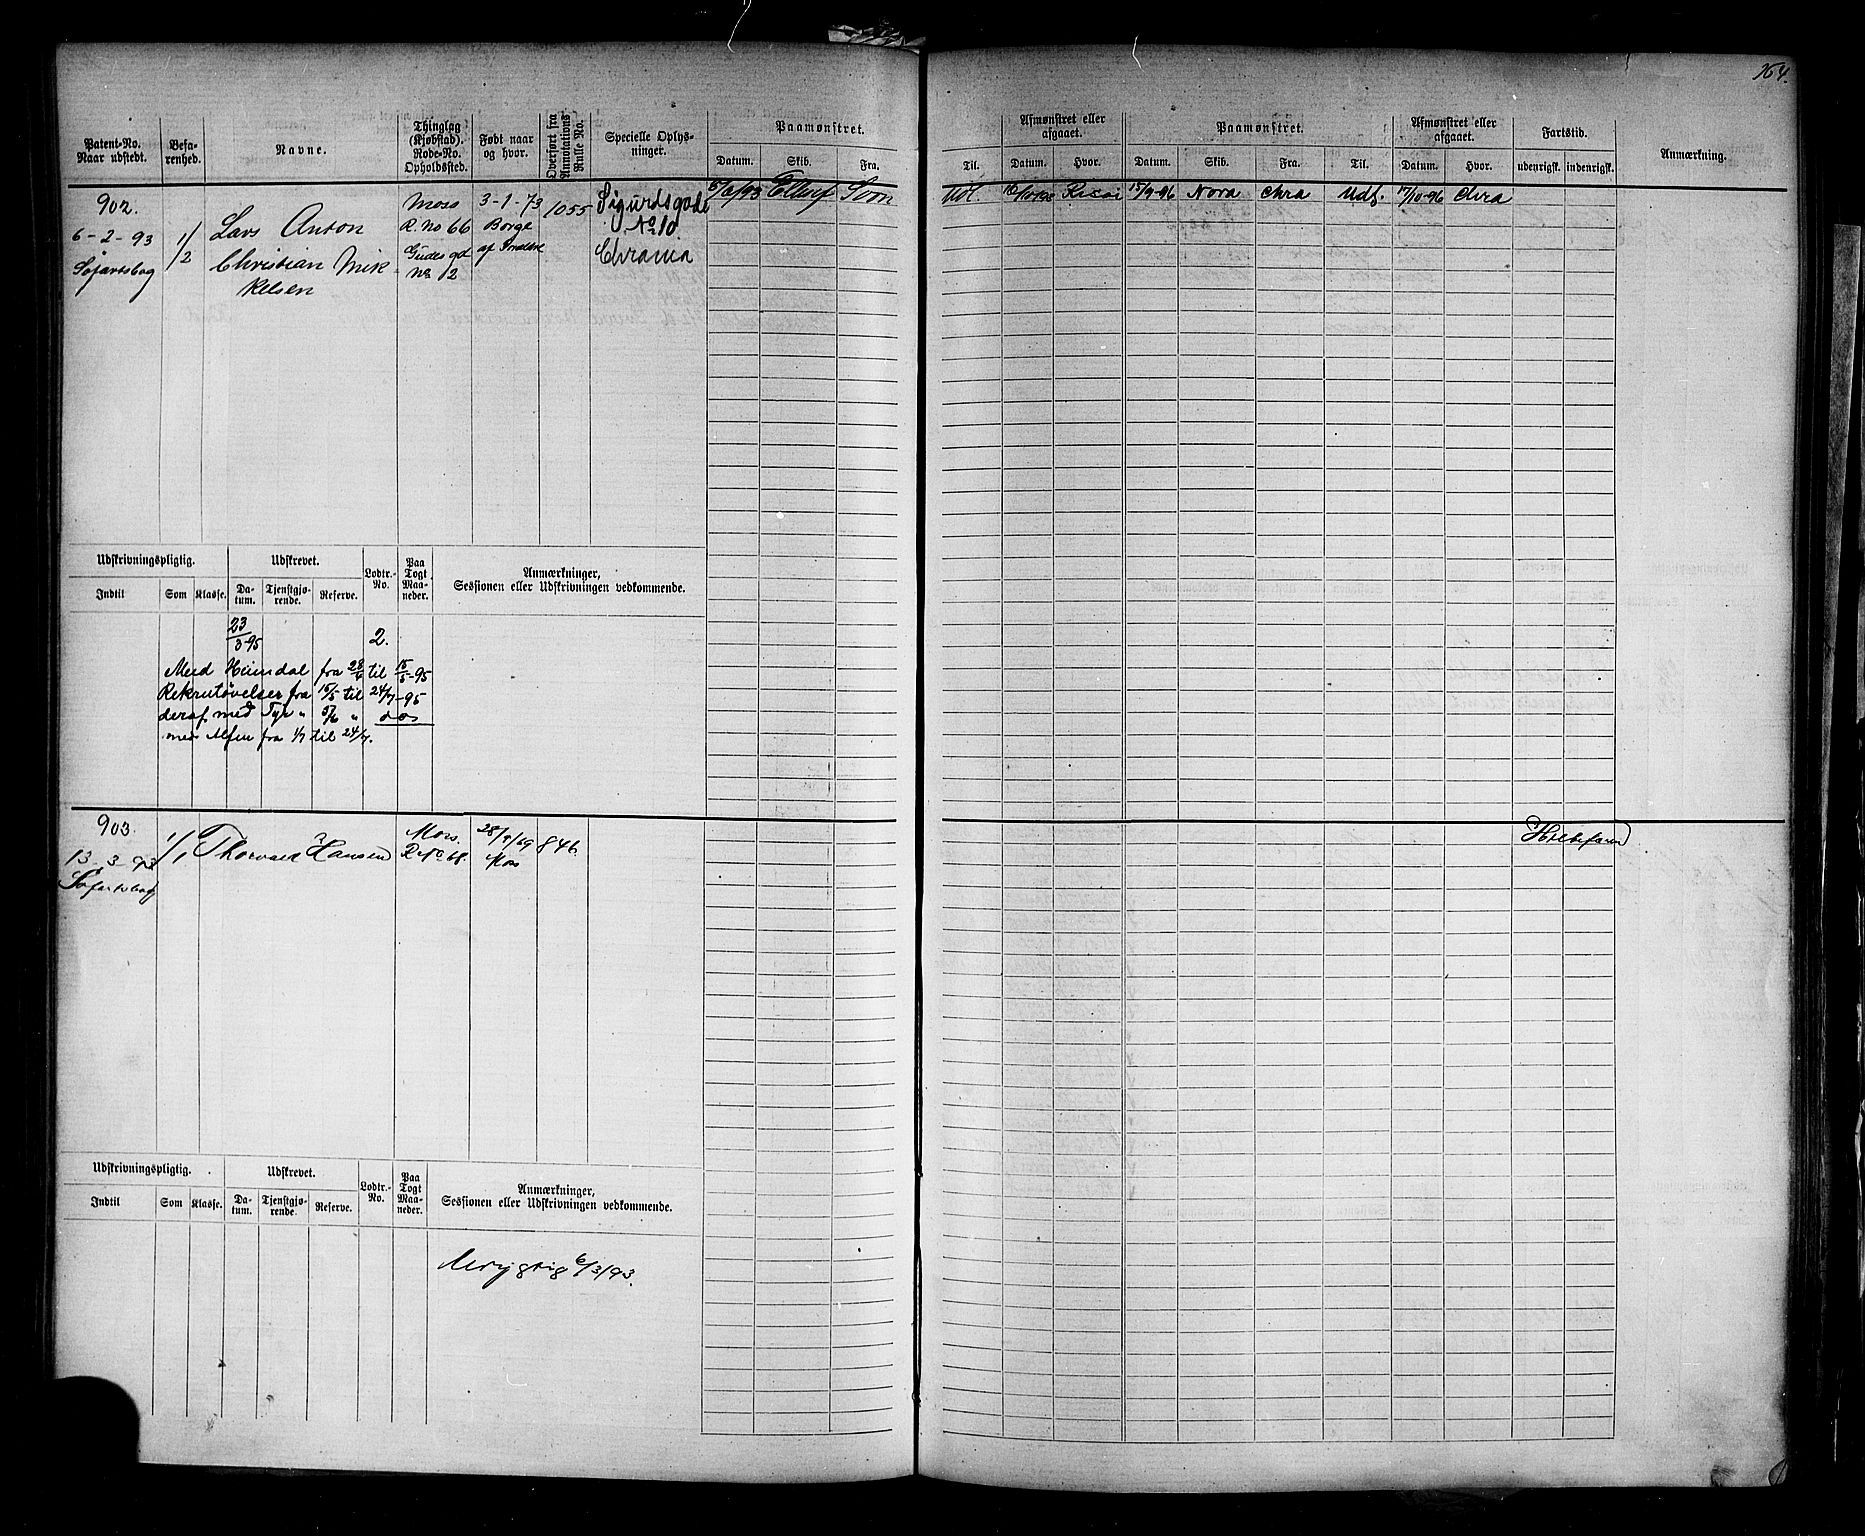 164.
Patent-No. Naar udstedt.
Befarenhed.
Navne.
Thinglag (Kjøbstad). Rode-No. Opholdssted.
Født naar og hvor.
Overført fra Annotations Rulle No.
Specielle Oplysninger.
Paamønstret.
Datum. Skib. Fra. Til.
Afmønstret eller afgaaet.
Datum. Hvor.
Paamønstret.
Datum. Skib. Fra. Til.
Afmønstret eller afgaaet.
Datum. Hvor.
Fartstid.
udenrigsk. indenrigsk.
Anmærkning.
902.
6-2-93
Søfartsbog
1/2
Lars Anton
Christian Mik-
kelsen
Moss
R. No 66
Gudesgd
No 12
3-1-73
Borge
1055
Sigurdsgade
No 10
Chrania
Soon
15/9-96 Nora Chra Udl. 17/10-96 Chra
Udskrivningspligtig. Udskrevet. Lodtr.-No. Paa Togt Maaneder.
Anmærkninger,
Sessionen eller Udskrivningen vedkommende.
Indtil Som Klasse. Datum. Tjenstgjørende. Reserve.
23/3-95 2.
Med Heimdal fra til 15/5-95
Rekrutøvelser fra 15/5 til 24/7-95
deraf med Tyr " "
med Alfen fra 1/7 til 24/7.
903.
13-3-93
Søfartsbog
1/1
Thorvald Hansen
Moss.
R. No. 68.
Moss
846.
Udskrivningspligtig. Udskrevet. Lodtr.-No. Paa Togt Maaneder.
Anmærkninger,
Sessionen eller Udskrivningen vedkommende.
Indtil Som Klasse. Datum. Tjenstgjørende. Reserve.
6/3/93.